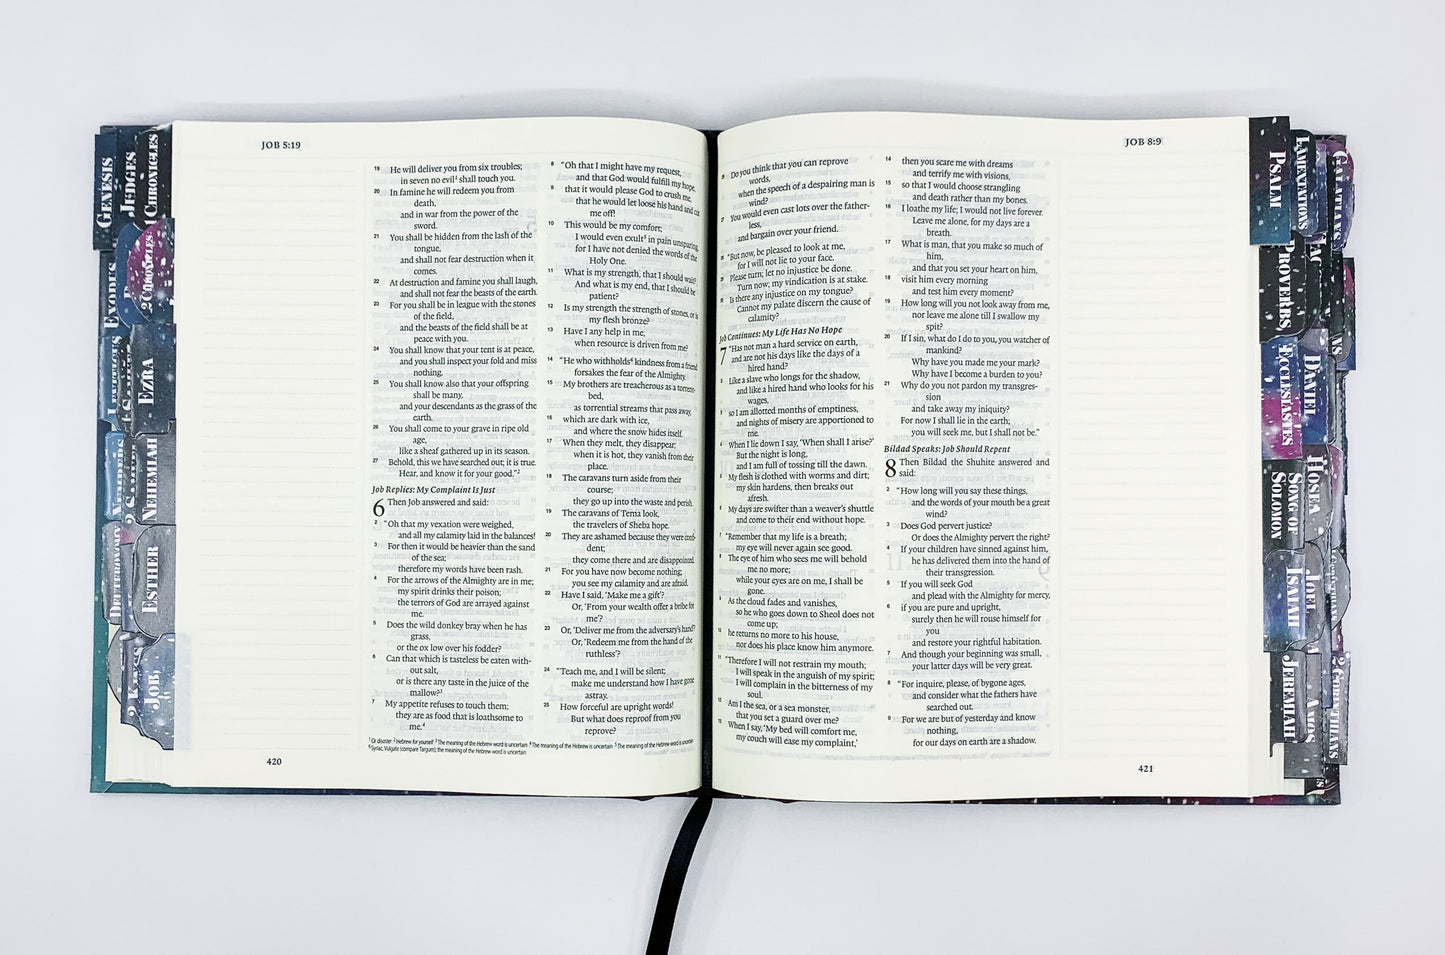 JOB 5:19
19 He will deliver you from six troubles;
in seven no evil¹ shall touch you.
20 In famine he will redeem you from
death,
and in war from the power of the
sword.
21 You shall be hidden from the lash of the
tongue,
and shall not fear destruction when it
comes.
22 At destruction and famine you shall laugh,
and shall not fear the beasts of the earth.
23 For you shall be in league with the stones
of the field,
and the beasts of the field shall be at
peace with you.
24 You shall know that your tent is at peace,
and you shall inspect your fold and miss
nothing.
25 You shall know also that your offspring
shall be many,
and your descendants as the grass of the
earth.
26 You shall come to your grave in ripe old
age,
like a sheaf gathered up in its season.
27 Behold, this we have searched out; it is true.
Hear, and know it for your good.”²
Job Replies: My Complaint Is Just
6 Then Job answered and said:
2 “Oh that my vexation were weighed,
and all my calamity laid in the balances!
3 For then it would be heavier than the sand
of the sea;
therefore my words have been rash.
4 For the arrows of the Almighty are in me;
my spirit drinks their poison;
the terrors of God are arrayed against
me.
5 Does the wild donkey bray when he has
grass,
or the ox low over his fodder?
6 Can that which is tasteless be eaten with-
out salt,
or is there any taste in the juice of the
mallow?³
7 My appetite refuses to touch them;
they are as food that is loathsome to
me.⁴
8 “Oh that I might have my request,
and that God would fulfill my hope,
9 that it would please God to crush me,
that he would let loose his hand and cut
me off!
10 This would be my comfort;
I would even exult⁵ in pain unsparing,
for I have not denied the words of the
Holy One.
11 What is my strength, that I should wait?
And what is my end, that I should be
patient?
12 Is my strength the strength of stones, or is
my flesh bronze?
13 Have I any help in me,
when resource is driven from me?
14 “He who withholds⁶ kindness from a friend
forsakes the fear of the Almighty.
15 My brothers are treacherous as a torrent-
bed,
as torrential streams that pass away,
16 which are dark with ice,
and where the snow hides itself.
17 When they melt, they disappear;
when it is hot, they vanish from their
place.
18 The caravans turn aside from their
course;
they go up into the waste and perish.
19 The caravans of Tema look,
the travelers of Sheba hope.
20 They are ashamed because they were confi-
dent;
they come there and are disappointed.
21 For you have now become nothing;
you see my calamity and are afraid.
22 Have I said, ‘Make me a gift’?
Or, ‘From your wealth offer a bribe for
me’?
23 Or, ‘Deliver me from the adversary’s hand’?
Or, ‘Redeem me from the hand of the
ruthless’?
24 “Teach me, and I will be silent;
make me understand how I have gone
astray.
25 How forceful are upright words!
But what does reproof from you
reprove?
¹ Or disaster ² Hebrew for yourself ³ The meaning of the Hebrew word is uncertain ⁴ The meaning of the Hebrew word is uncertain ⁵ The meaning of the Hebrew word is uncertain
Syriac, Vulgate (compare Targum); the meaning of the Hebrew word is uncertain
420
JOB 8:9
Do you think that you can reprove
words,
when the speech of a despairing man is
wind?
27 You would even cast lots over the father-
less,
and bargain over your friend.
28 “But now, be pleased to look at me,
for I will not lie to your face.
29 Please turn; let no injustice be done.
Turn now; my vindication is at stake.
30 Is there any injustice on my tongue?
Cannot my palate discern the cause of
calamity?
Job Continues: My Life Has No Hope
7 “Has not man a hard service on earth,
and are not his days like the days of a
hired hand?
2 Like a slave who longs for the shadow,
and like a hired hand who looks for his
wages,
3 so I am allotted months of emptiness,
and nights of misery are apportioned to
me.
4 When I lie down I say, ‘When shall I arise?’
But the night is long,
and I am full of tossing till the dawn.
5 My flesh is clothed with worms and dirt;
my skin hardens, then breaks out
afresh.
6 My days are swifter than a weaver’s shuttle
and come to their end without hope.
7 “Remember that my life is a breath;
my eye will never again see good.
8 The eye of him who sees me will behold
me no more;
while your eyes are on me, I shall be
gone.
9 As the cloud fades and vanishes,
so he who goes down to Sheol does not
come up;
10 he returns no more to his house,
nor does his place know him anymore.
11 “Therefore I will not restrain my mouth;
I will speak in the anguish of my spirit;
I will complain in the bitterness of my
soul.
12 Am I the sea, or a sea monster,
that you set a guard over me?
13 When I say, ‘My bed will comfort me,
my couch will ease my complaint,’
14 then you scare me with dreams
and terrify me with visions,
15 so that I would choose strangling
and death rather than my bones.
16 I loathe my life; I would not live forever.
Leave me alone, for my days are a
breath.
17 What is man, that you make so much of
him,
and that you set your heart on him,
18 visit him every morning
and test him every moment?
19 How long will you not look away from me,
nor leave me alone till I swallow my
spit?
20 If I sin, what do I do to you, you watcher of
mankind?
Why have you made me your mark?
Why have I become a burden to you?
21 Why do you not pardon my transgres-
sion
and take away my iniquity?
For now I shall lie in the earth;
you will seek me, but I shall not be.”
Bildad Speaks: Job Should Repent
8 Then Bildad the Shuhite answered and
said:
2 “How long will you say these things,
and the words of your mouth be a great
wind?
3 Does God pervert justice?
Or does the Almighty pervert the right?
4 If your children have sinned against him,
he has delivered them into the hand of
their transgression.
5 If you will seek God
and plead with the Almighty for mercy,
6 if you are pure and upright,
surely then he will rouse himself for
you
and restore your rightful habitation.
7 And though your beginning was small,
your latter days will be very great.
8 “For inquire, please, of bygone ages,
and consider what the fathers have
searched out.
9 For we are but of yesterday and know
nothing,
for our days on earth are a shadow.
421
GENESIS
JUDGES
1 CHRONICLES
EXODUS
2 CHRONICLES
EZRA
NUMBERS
NEHEMIAH
ESTHER
JOB
PSALM
LAMENTATIONS
GALATIANS
PROVERBS
ECCLESIASTES
DANIEL
SONG OF
SOLOMON
HOSEA
ISAIAH
JOEL
JEREMIAH
AMOS